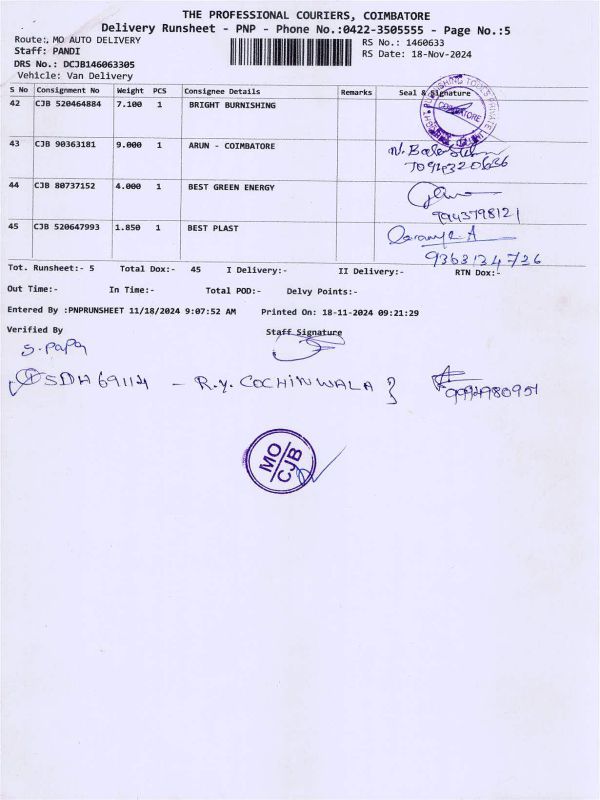 THE PROFESSIONAL COURIERS, COIMBATORE
Delivery Runsheet - PNP - Phone No.:0422-3505555 - Page No.:5
Route:, MO AUTO DELIVERY
RS No.: 1460633
Staff: PANDI
RS Date: 18-Nov-2024
DRS No.: DCJB146063305
Vehicle: Van Delivery
S No Consignment No Weight PCS Consignee Details Remarks Seal & Signature
42 CJB 520464884 7.100 1 BRIGHT BURNISHING
COIMBATORE
43 CJB 90363181 9.000 1 ARUN - COIMBATORE
7094320636
44 CJB 80737152 4.000 1 BEST GREEN ENERGY
9943798121
45 CJB 520647993 1.850 1 BEST PLAST
9363134726
Tot. Runsheet:- 5 Total Dox:- 45 I Delivery:- II Delivery:- RTN Dox:-
Out Time:- In Time:- Total POD:- Delvy Points:-
Entered By :PNPRUNSHEET 11/18/2024 9:07:52 AM Printed On: 18-11-2024 09:21:29
Verified By Staff Signature
S. Papa
R.Y. COCHINWALA }
MO
CJB